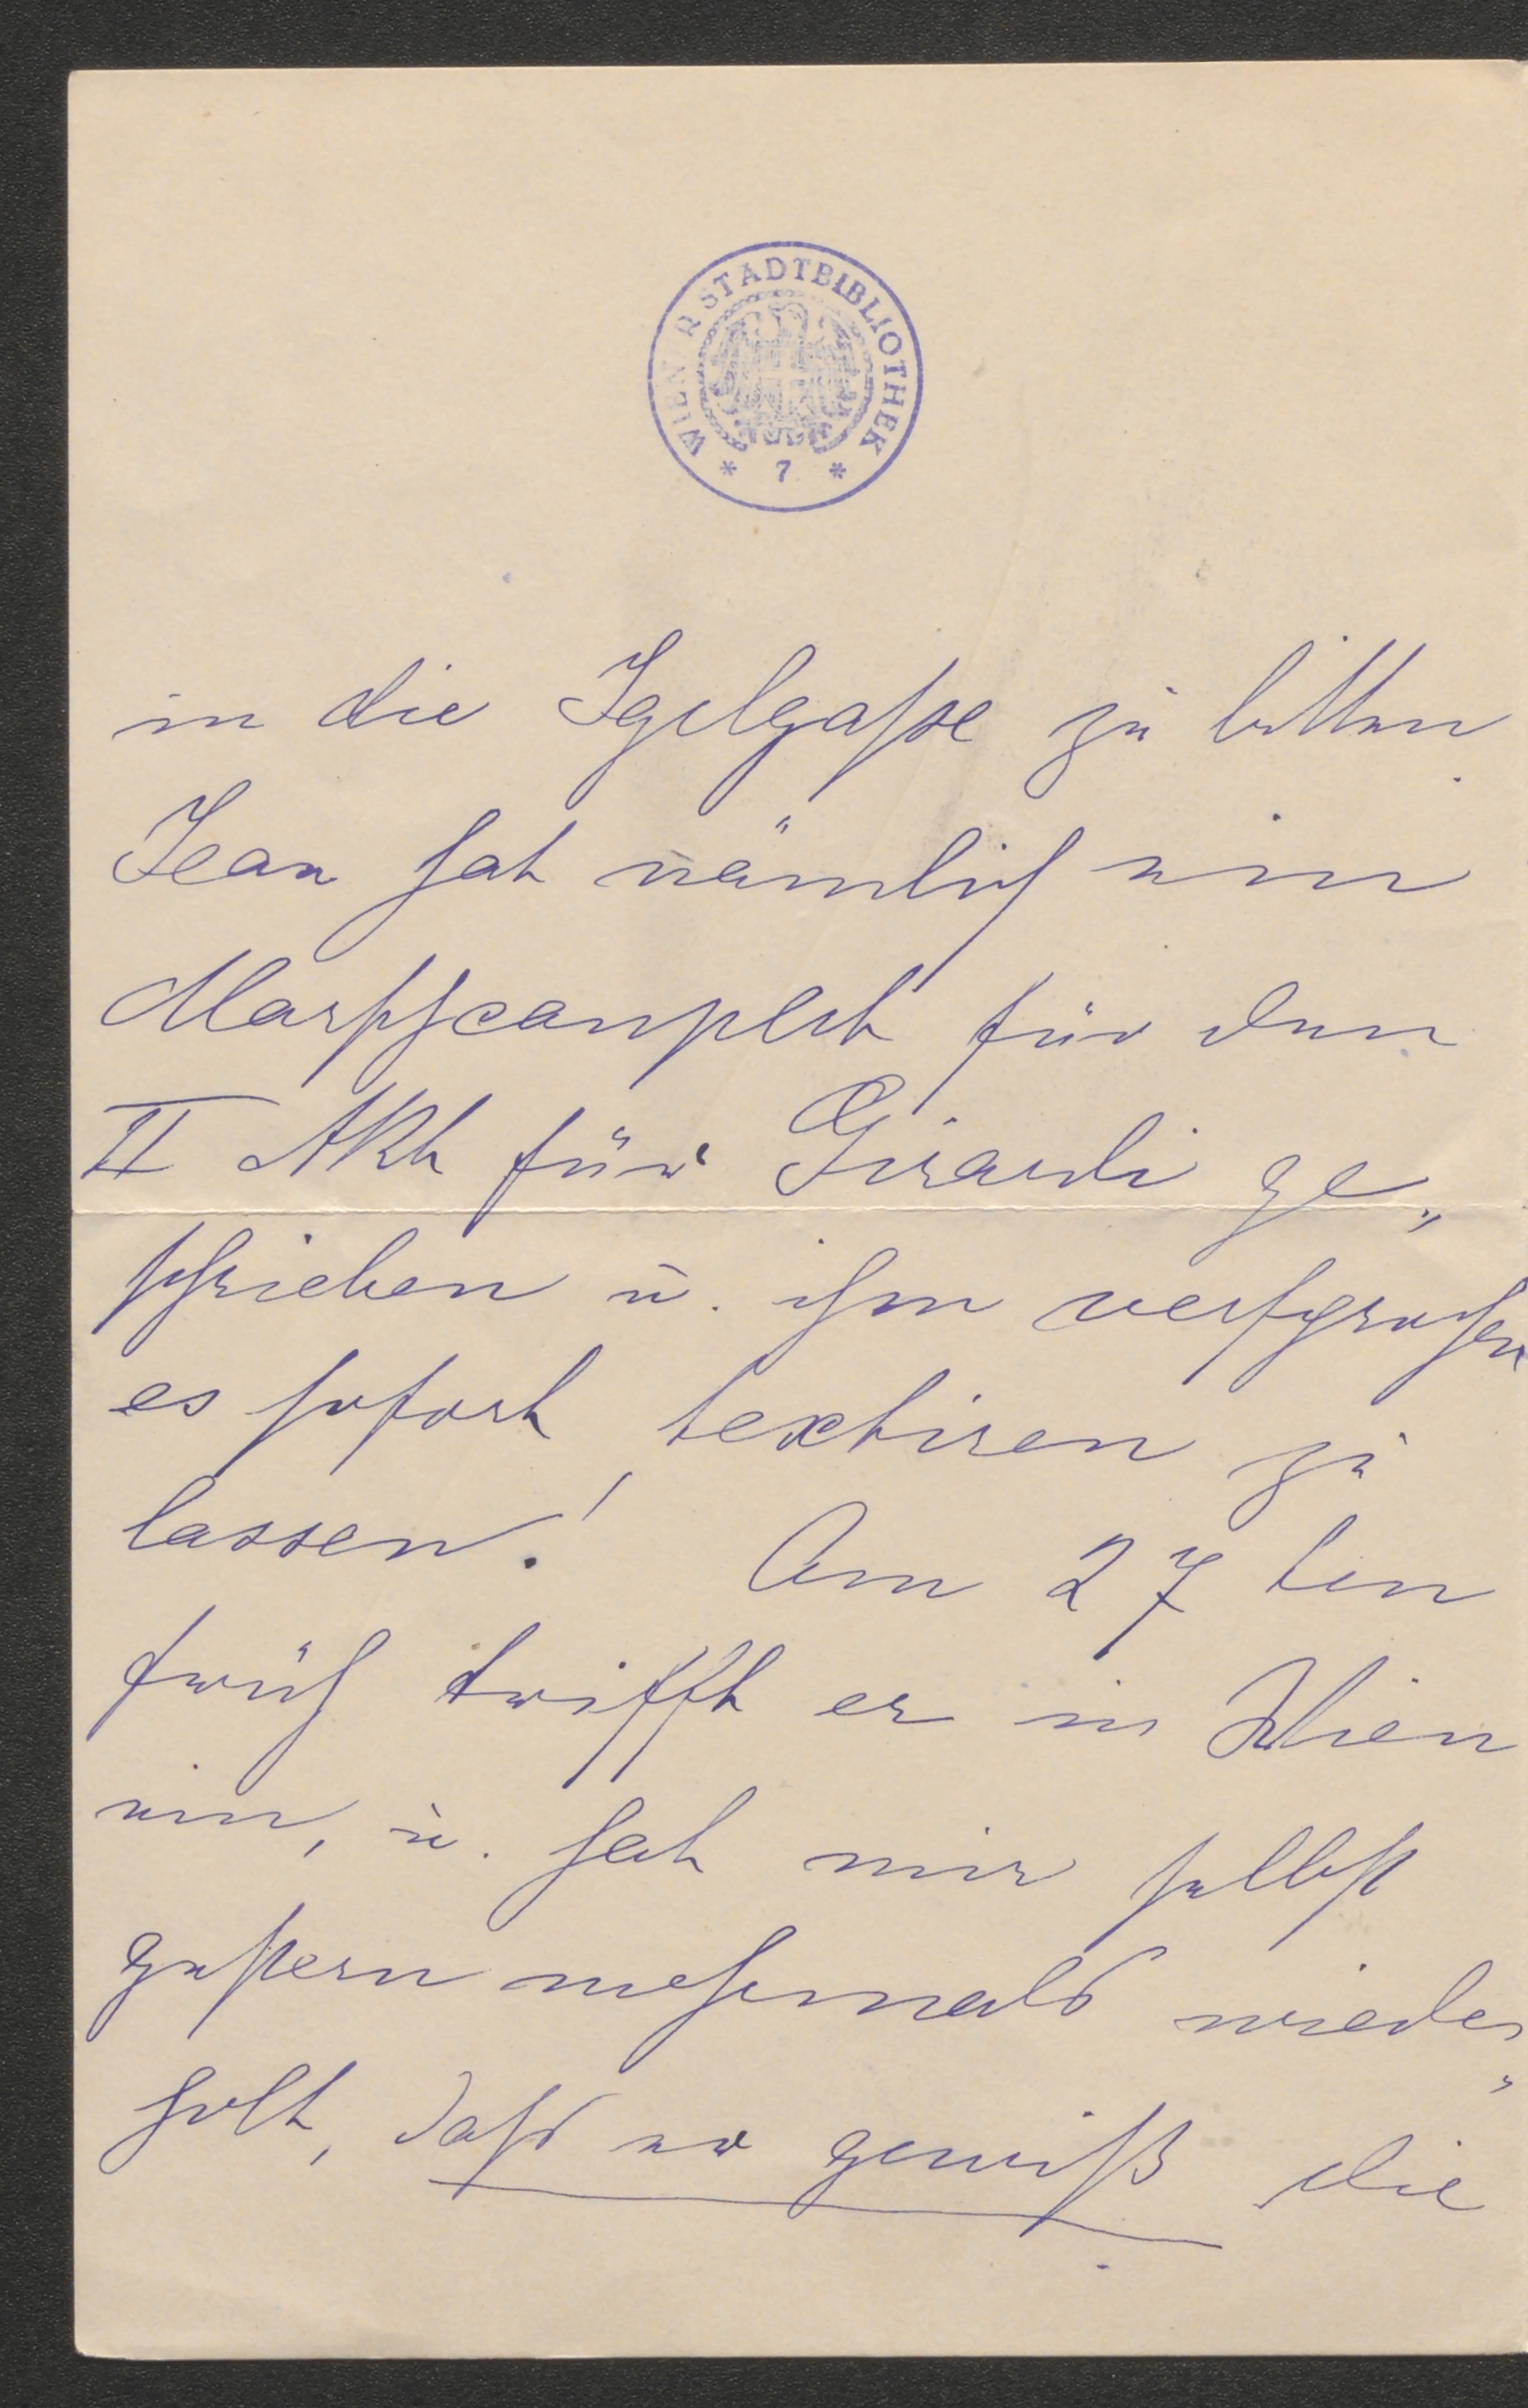 WIENER STADTBIBLIOTHEK
* 7 *
in die Igelgasse zu bitten.
Jean hat nämlich ein
Marschcouplet für den
II Akt für Girardi ge„
schrieben u. ihm versprochen
es sofort textiren zu
lassen! Am 27 ten
früh trifft er in Wien
ein, u. hat mir selbst
gestern mehrmals wieder„
holt, dass er gewiß die